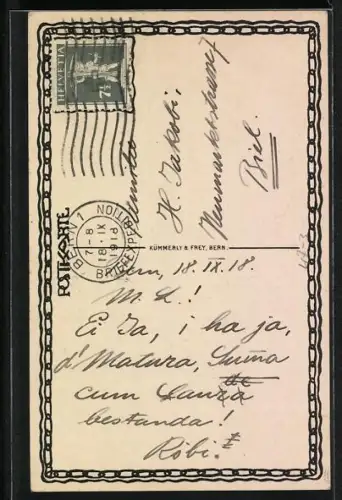 HELVETIA
7½
BERN 1
7-8
18.IX
1918
BRIEFEXPEDITION
POSTKARTE
H. Jakobi,
Neumarktstrasse 7
Biel.
KÜMMERLY & FREY, BERN.
Bern, 18.IX.18.
M. L.!
Ei Ja, i ha ja,
d'Matura, Suma
cum Laura
bestanda!
Röbi.
49-3